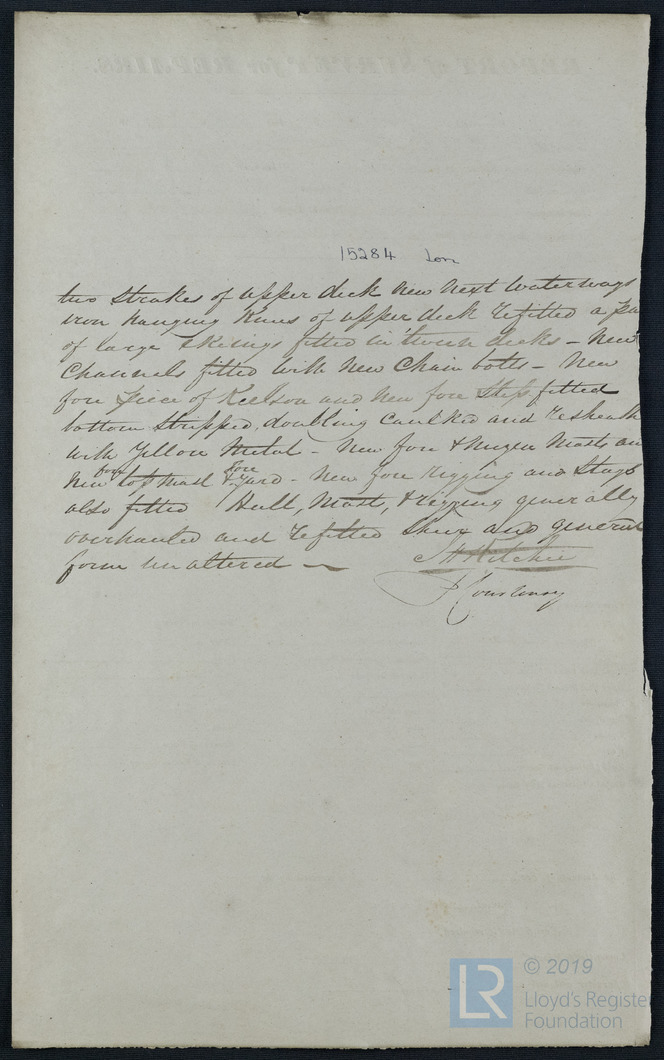 REPORT of SURVEY for REPAIRS.
15284 Lon
two Strakes of upper deck new next Waterways
iron hanging Knees of upper deck refitted a pa
of large fitted in 'tween decks - New
Channels fitted with new Chain bolts - New
fore piece of Keelson and new fore Step fitted
bottom stripped, doubling caulked and resheath
with Yellow Metal - New fore & Mizen Masts an
New fore topmast & fore Yard - New fore rigging and Stays
also fitted Hull, Mast, & Rigging generally
overhauled and refitted Sheer and general
form unaltered -
J H Ritchie
P Courtenay
© 2019
LR
Lloyd's Register
Foundation